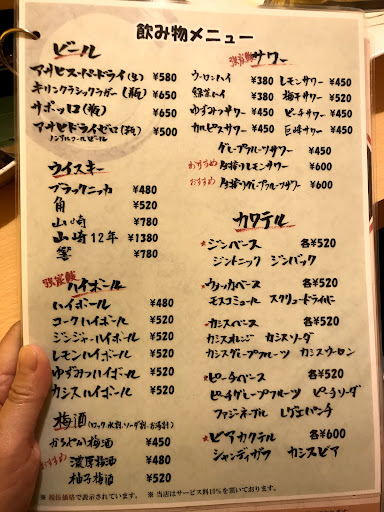 飲み物メニュー
ビール
アサヒスーパードライ(生) ¥580
キリンクラシックラガー(瓶) ¥650
サッポロ(瓶) ¥650
アサヒドライゼロ(瓶) ¥500
ノンアルコールビール
ウイスキー
ブラックニッカ ¥480
角 ¥520
山崎 ¥780
山崎12年 ¥1380
響 ¥780
ハイボール
ハイボール ¥480
コークハイボール ¥520
ジンジャーハイボール ¥520
レモンハイボール ¥520
ゆずみつハイボール ¥520
カシスハイボール ¥520
梅酒(ロック,水割,ソーダ割,お湯割)
からやか梅酒 ¥450
おすすめ 濃厚梅酒 ¥480
柚子梅酒 ¥520
サワー
ウーロンハイ ¥380
緑茶ハイ ¥380
ゆずみつサワー ¥450
カルピスサワー ¥450
レモンサワー ¥450
梅干サワー ¥520
ピーチサワー ¥450
巨峰サワー ¥450
グレープフルーツサワー ¥450
おすすめ 生搾りレモンサワー ¥600
おすすめ 生搾りグレープフルーツサワー ¥600
カクテル
★ジンベース 各¥520
ジントニック ジンバック
★ウォッカベース 各¥520
モスコミュール スクリュードライバー
★カシスベース 各¥520
カシスオレンジ カシスソーダ
カシスグレープフルーツ カシスウーロン
★ピーチベース 各¥520
ピーチグレープフルーツ ピーチソーダ
ファジーネーブル レゲエパンチ
★ビアカクテル 各¥600
シャンディガフ カシスビア
※ 税抜価格で表示されています。 ※ 当店はサービス料10%を頂いております。